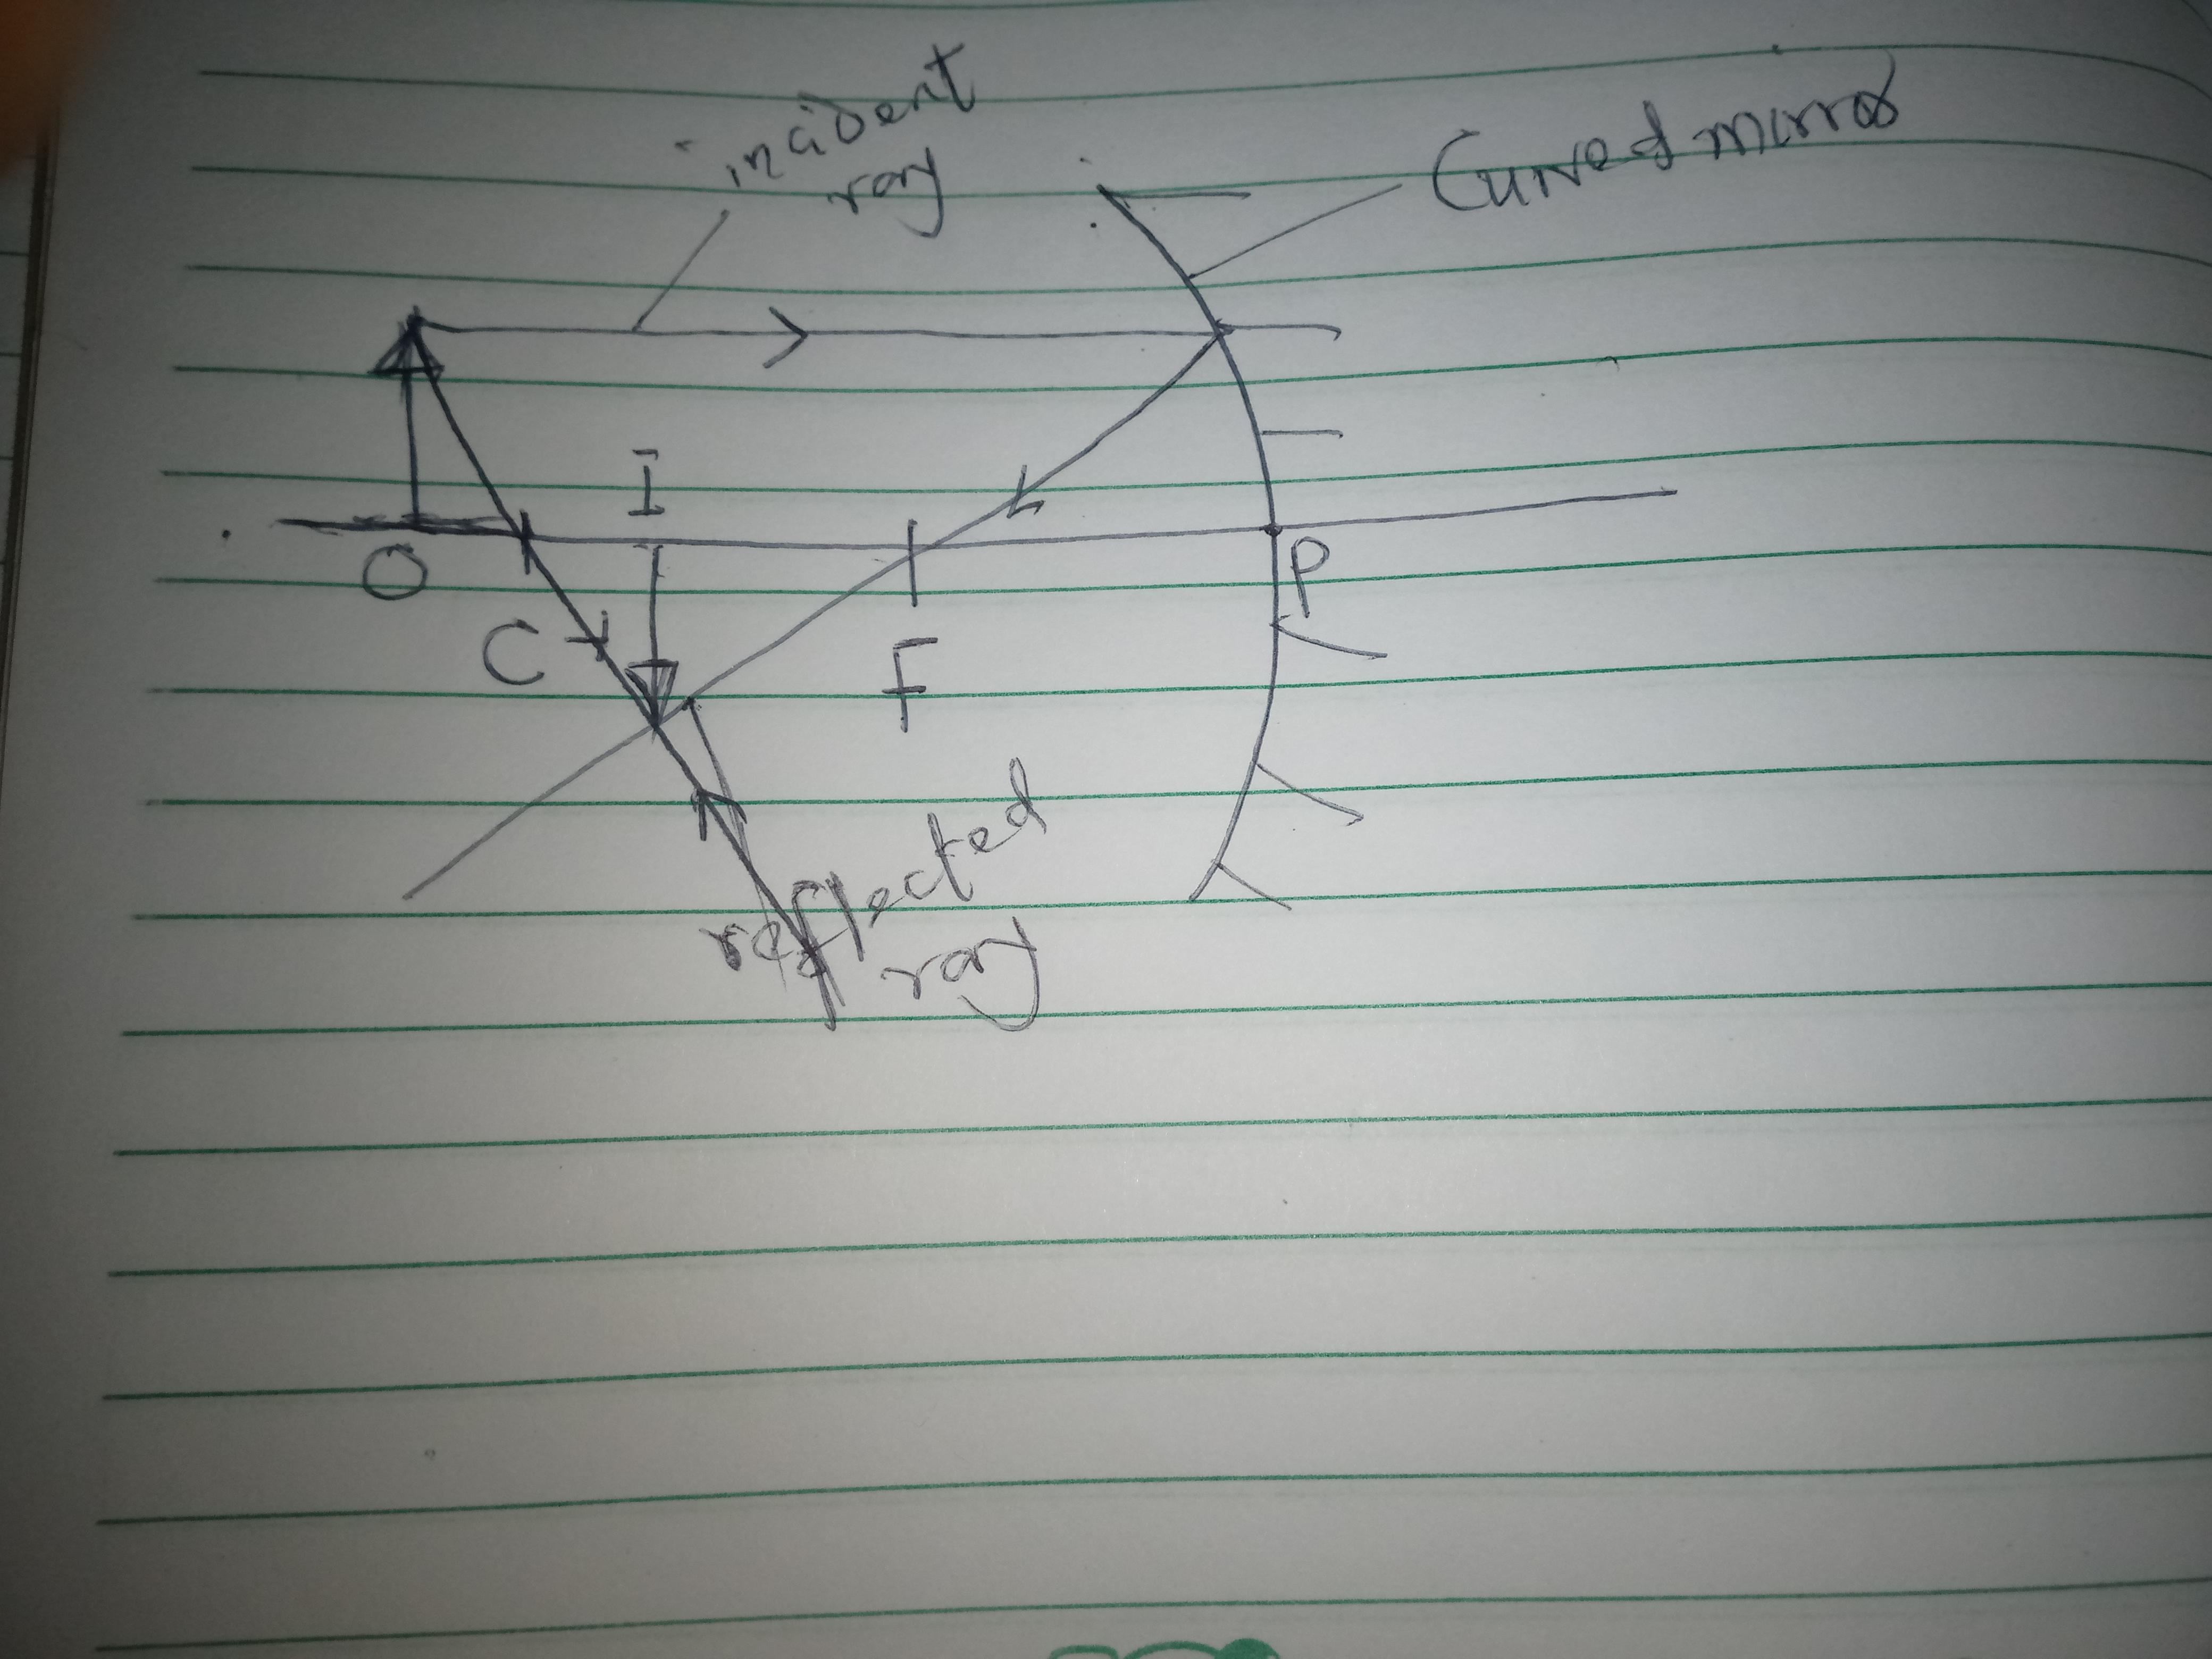 incident
ray
Curved mirror
I
O
P
C
F
reflected
ray